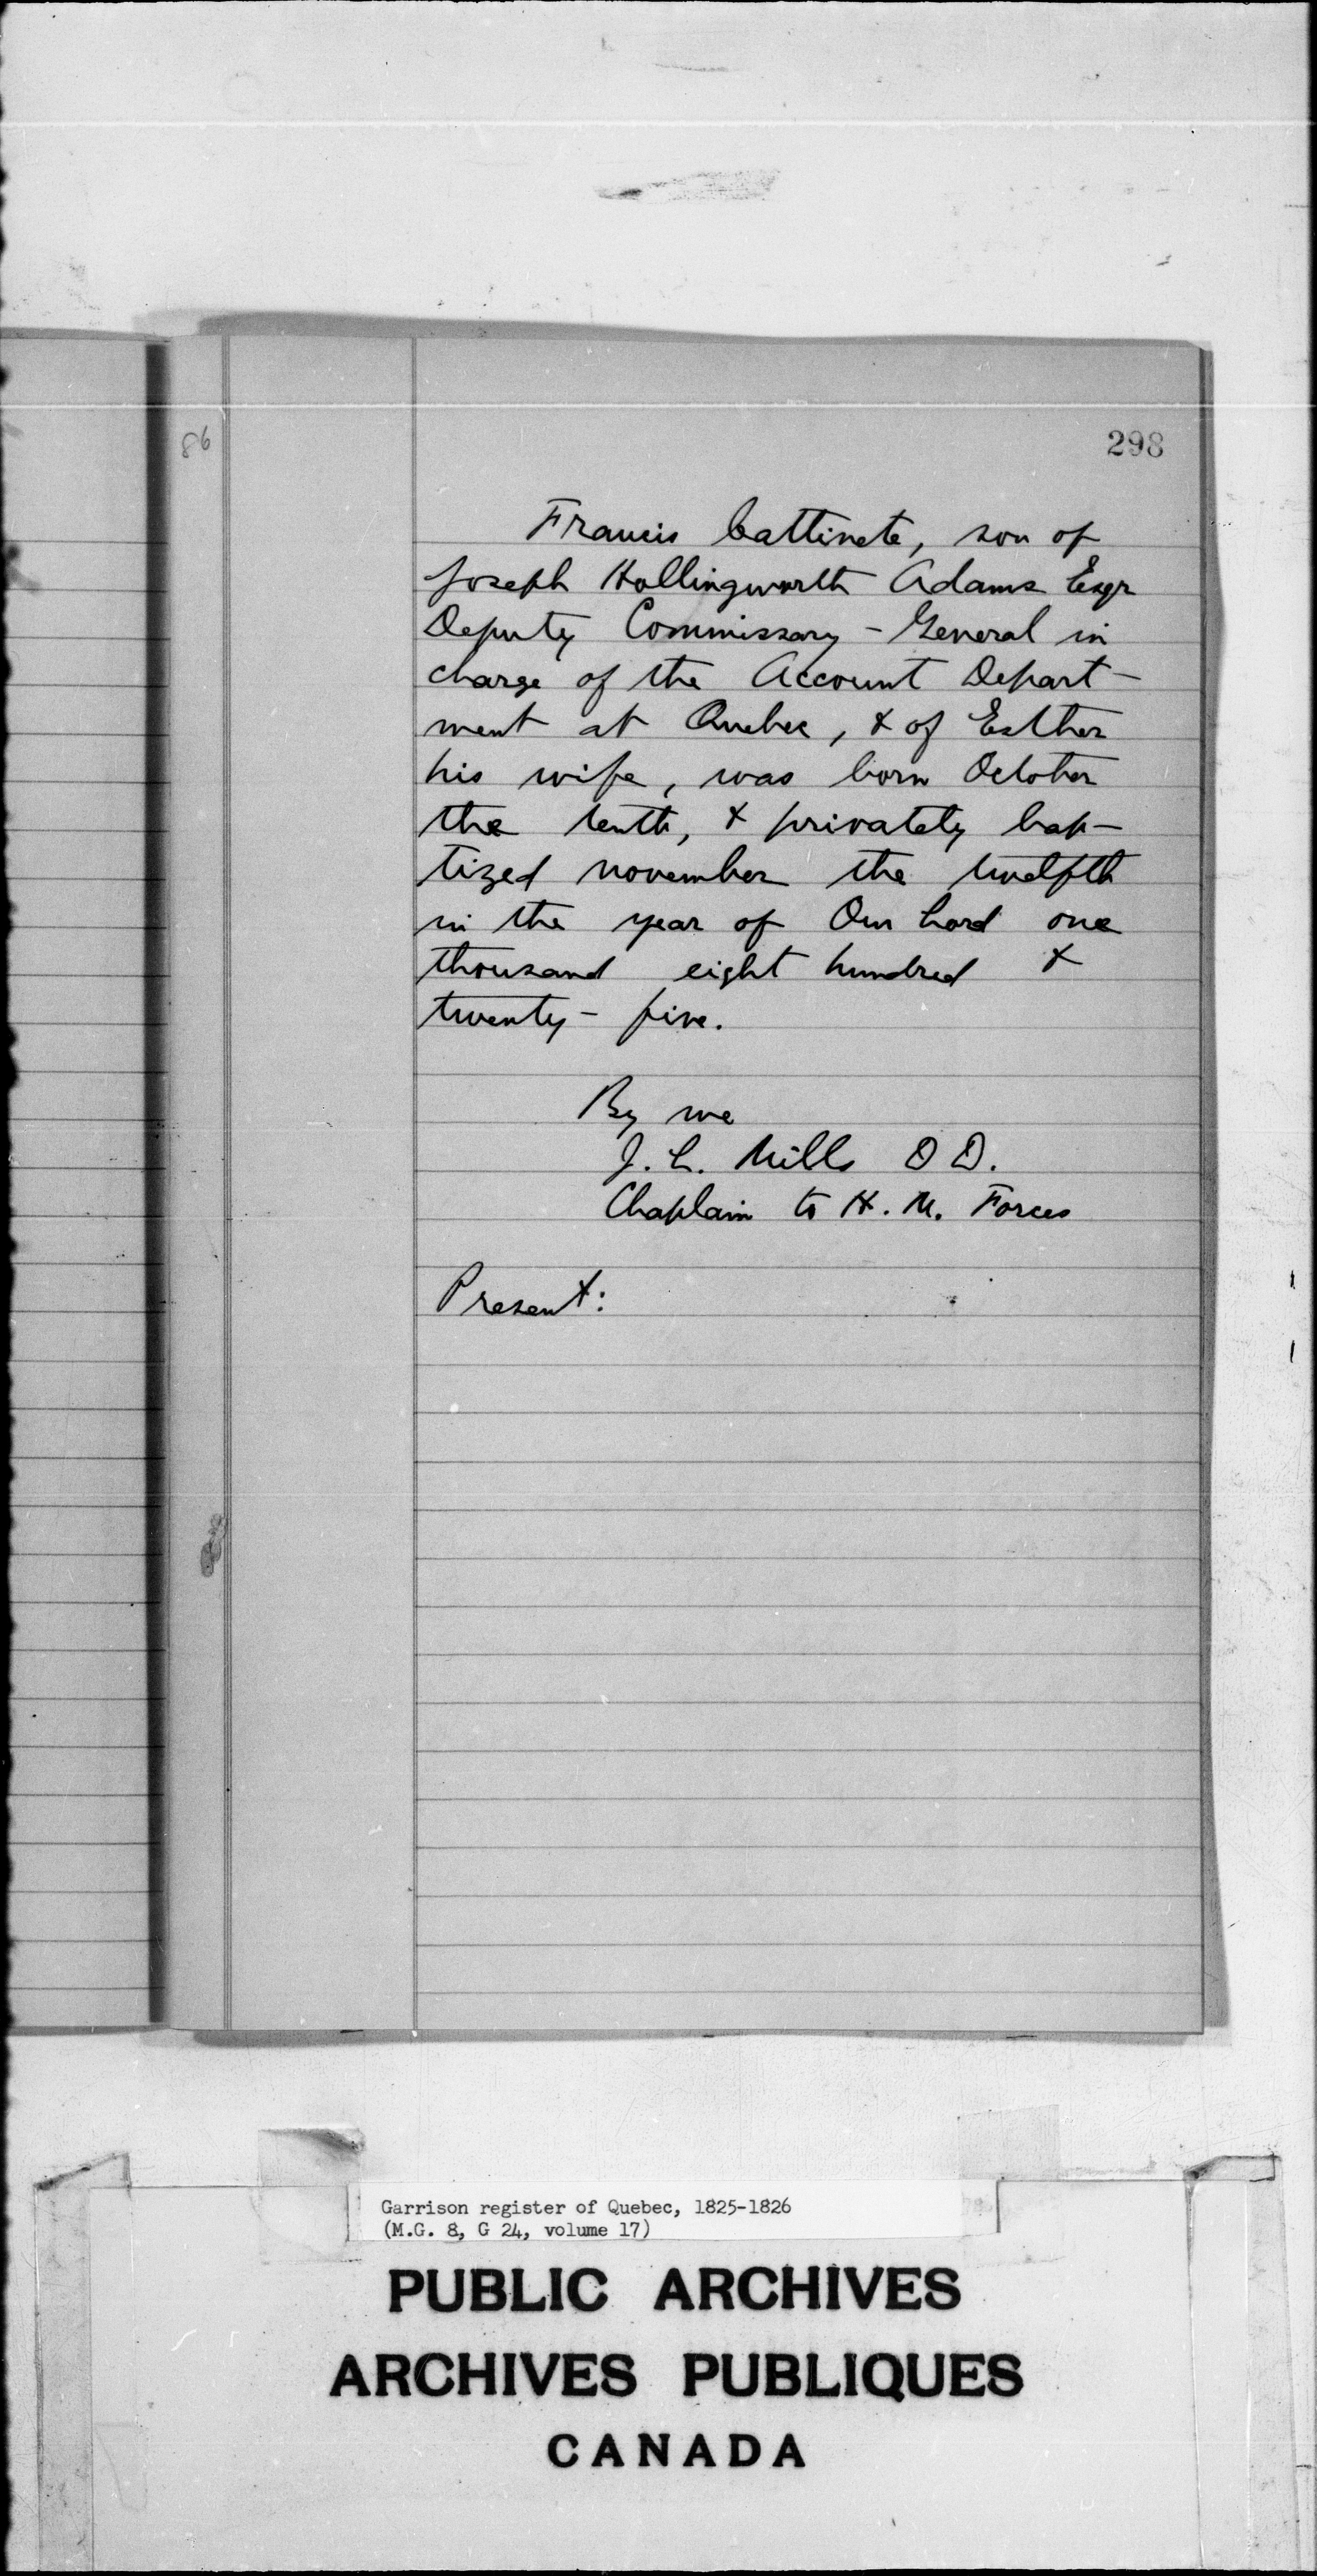 86
298
Francis Cattinete, son of
Joseph Hollingworth Adams Esqr
Deputy Commissary - General in
charge of the Account Depart-
ment at Quebec, & of Esther
his wife, was born October
the tenth, & privately bap-
tized november the twelfth
in the year of Our Lord one
thousand eight hundred &
twenty - five.
By me
J. L. Mills D D.
Chaplain to H. M. Forces
Present:
Garrison register of Quebec, 1825-1826
(M.G. 8, G 24, volume 17)
PUBLIC ARCHIVES
ARCHIVES PUBLIQUES
CANADA